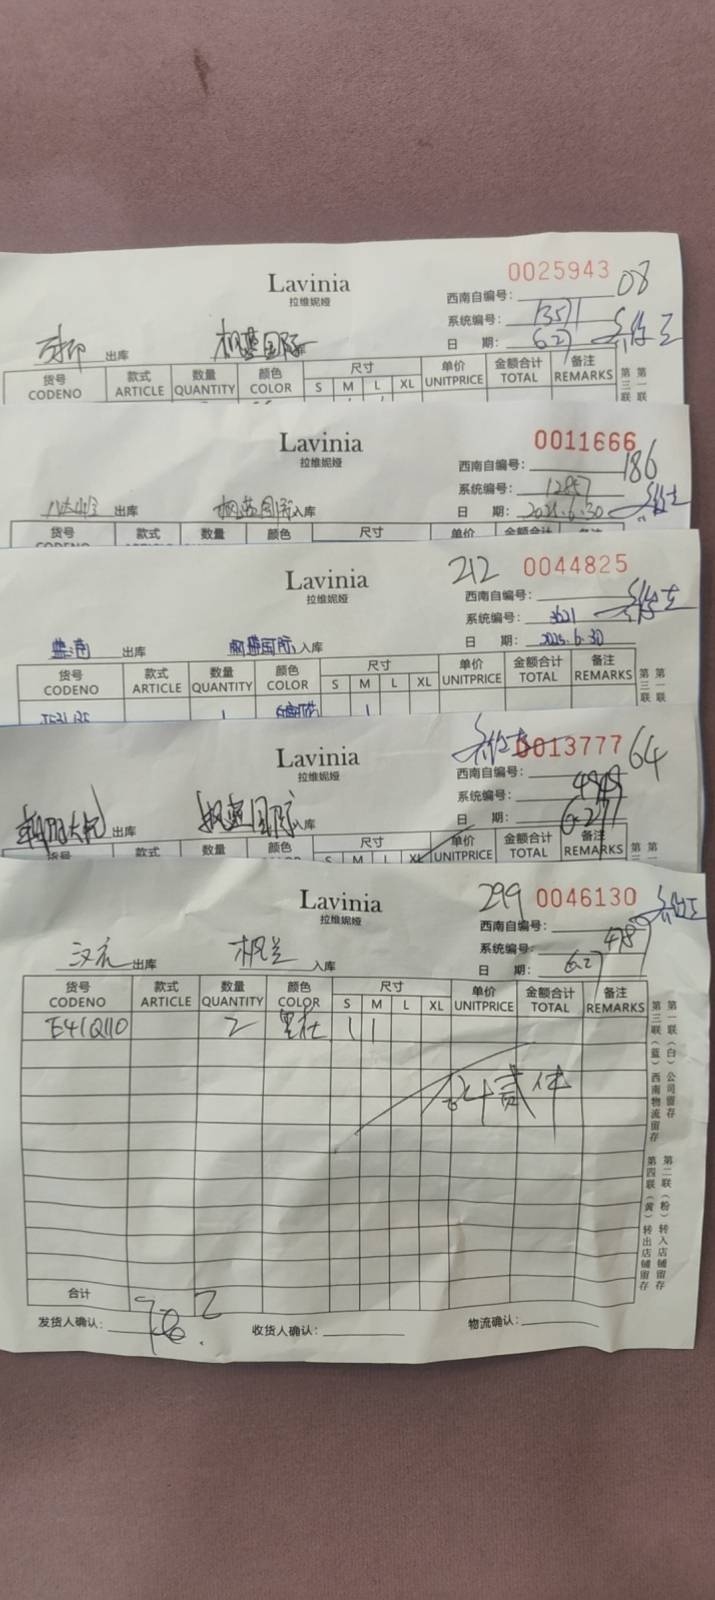 Lavinia
拉维妮娅
0025943
08
西南自编号：
系统编号： 1351
日 期： 6.27
出库 枫蓝国际
货号 款式 数量 颜色 尺寸 单价 金额合计 备注
CODENO ARTICLE QUANTITY COLOR S M L XL UNITPRICE TOTAL REMARKS
第三联 第一联
Lavinia
拉维妮娅
0011666
186
西南自编号：
系统编号： 1285
日 期： 6.30
出库 枫蓝国际入库
货号 款式 数量 颜色 尺寸 单价 金额合计
Lavinia
拉维妮娅
212 0044825
西南自编号：
系统编号： 3621
日 期： 2025.6.30
出库 枫蓝国际入库
货号 款式 数量 颜色 尺寸 单价 金额合计 备注
CODENO ARTICLE QUANTITY COLOR S M L XL UNITPRICE TOTAL REMARKS
第三联 第一联
1 1
Lavinia
拉维妮娅
0013777
64
西南自编号：
系统编号： 4949
日 期： 6.27
朝阳大悦 出库 枫蓝国际入库
货号 款式 数量 颜色 尺寸 单价 金额合计 备注
S M L XL UNITPRICE TOTAL REMARKS
Lavinia
拉维妮娅
299 0046130
西南自编号：
系统编号： 4787
日 期： 6.27
出库 枫兰 入库
货号 款式 数量 颜色 尺寸 单价 金额合计 备注
CODENO ARTICLE QUANTITY COLOR S M L XL UNITPRICE TOTAL REMARKS
E41Q110 2 1 1
合计贰件
合计 2
发货人确认： 收货人确认： 物流确认：
第一联（白）公司留存
第三联（蓝）西南物流留存
第二联（粉）转入店铺留存
第四联（黄）转出店铺留存